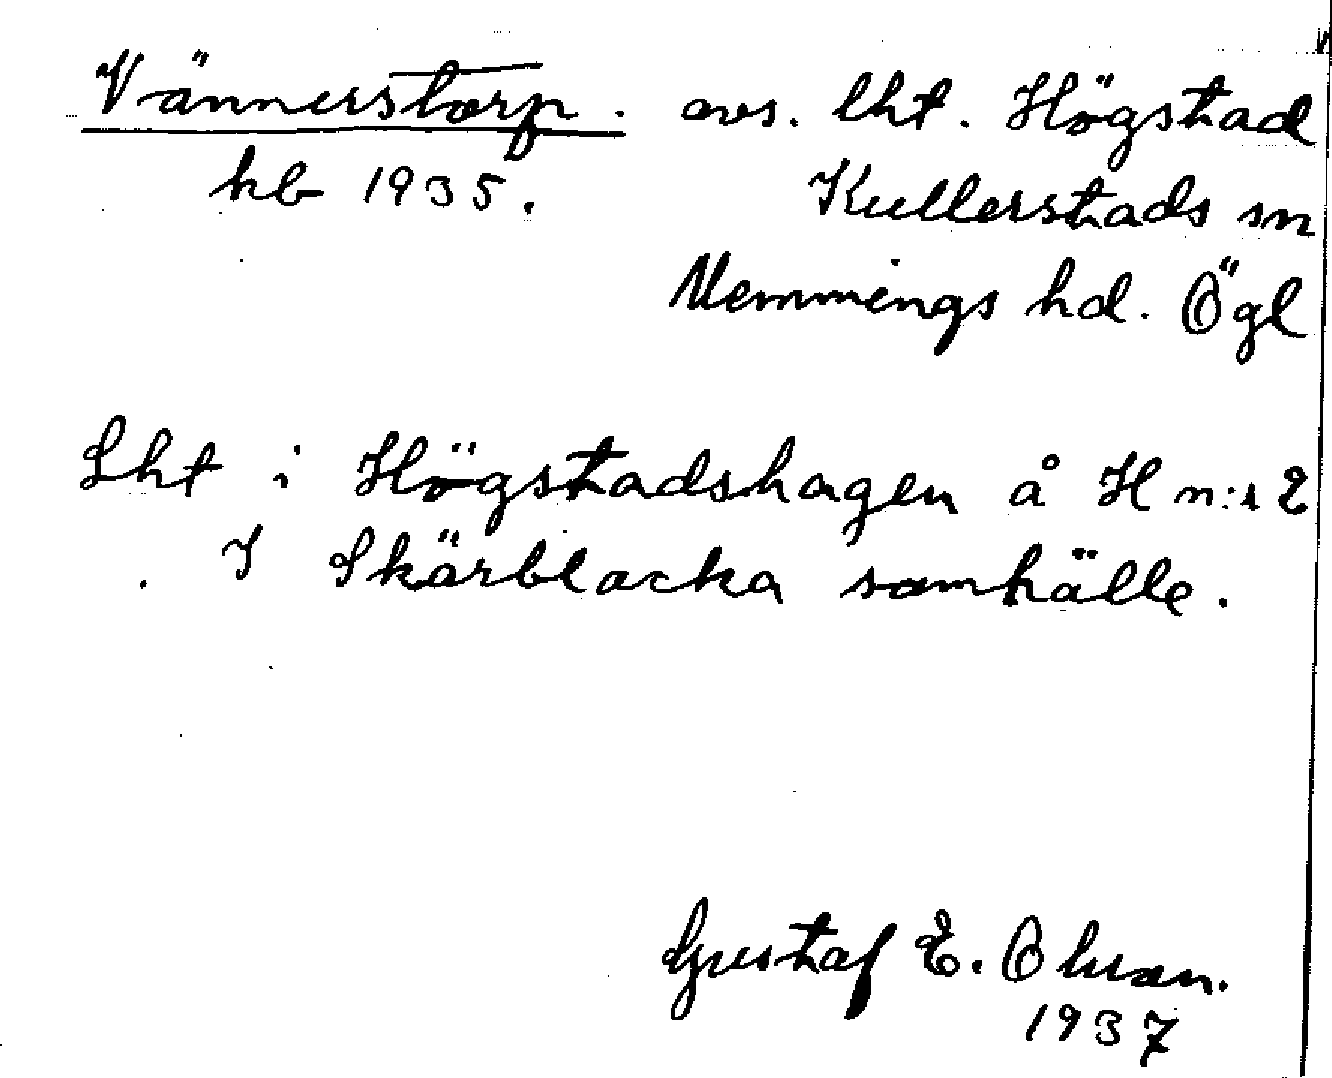 Vännerstorp. avs. lht. Högstad
hb 1935. Kullerstads sn
Memmings hd. Ögl
Lht i Högstadshagen å H n:r 2
. I Skärblacka samhälle.
Gustaf E. Olsson.
1937